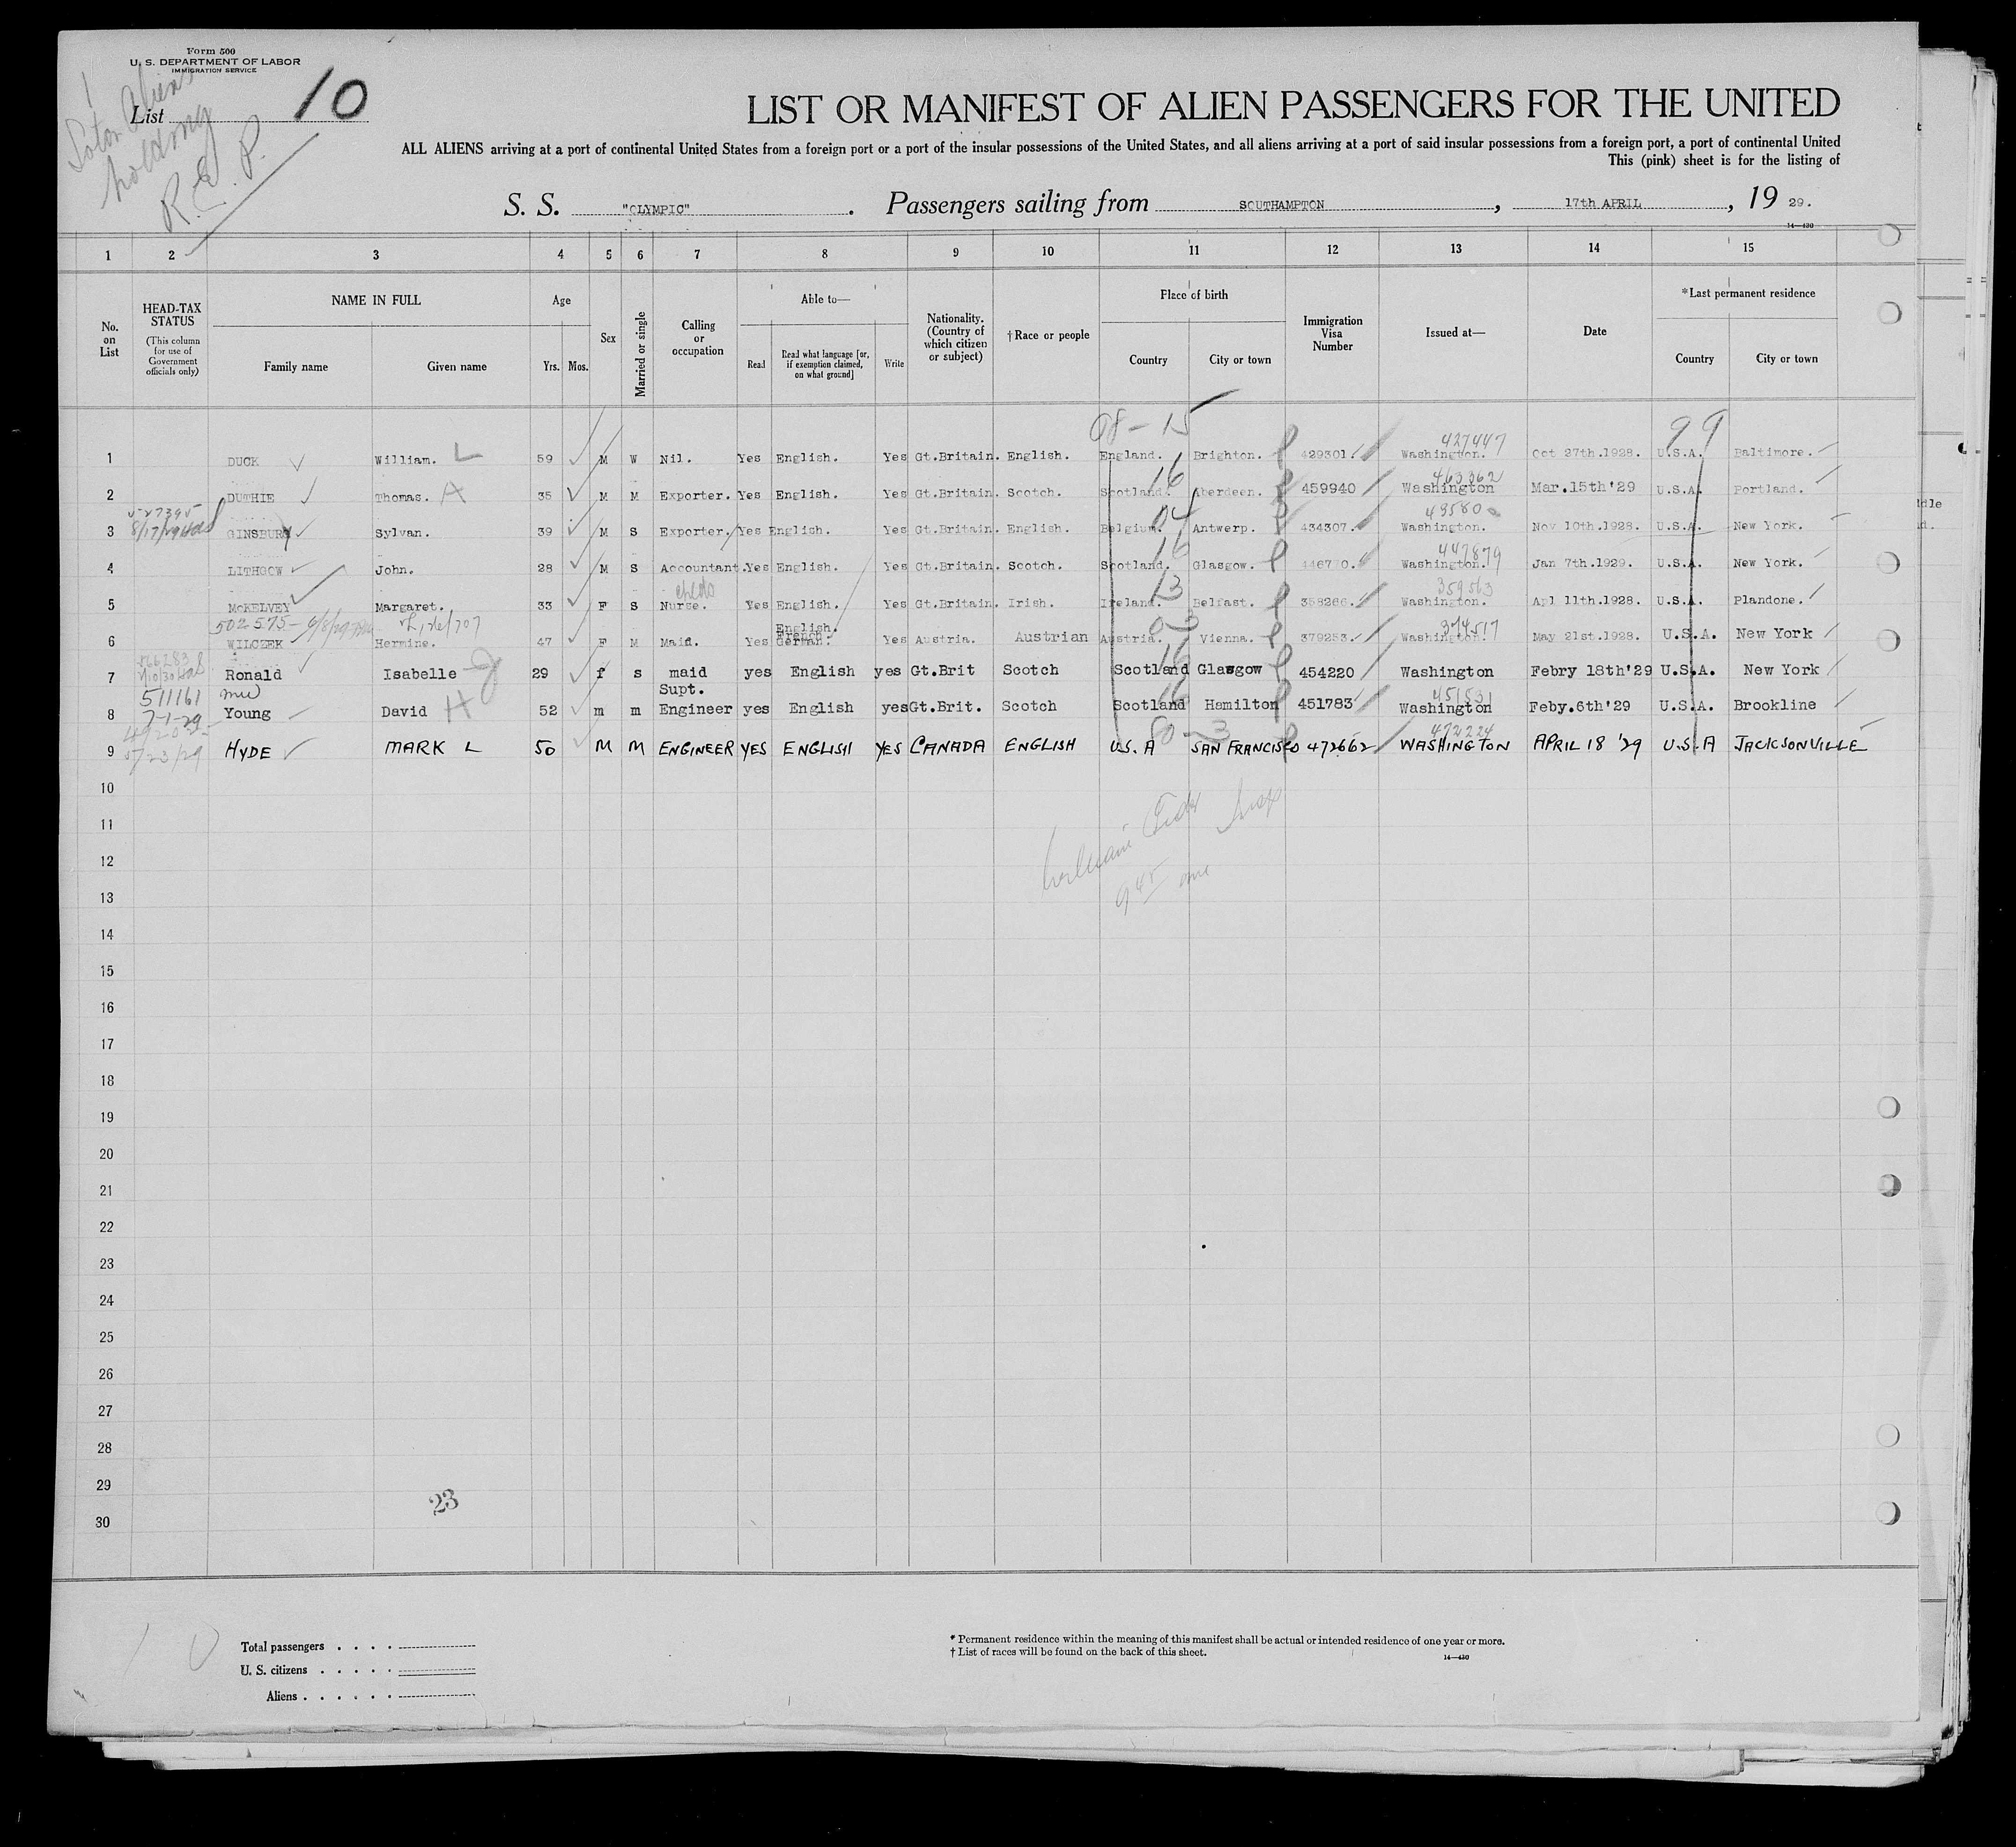 Form 500
U. S. DEPARTMENT OF LABOR
IMMIGRATION SERVICE
List 10
Aliens
holding
R. E. P.
LIST OR MANIFEST OF ALIEN PASSENGERS FOR THE UNITED
ALL ALIENS arriving at a port of continental United States from a foreign port or a port of the insular possessions of the United States, and all aliens arriving at a port of said insular possessions from a foreign port, a port of continental United
This (pink) sheet is for the listing of
S. S. "OLYMPIC". Passengers sailing from SOUTHAMPTON, 17th APRIL, 19 29.
14—430
1 2 3 4 5 6 7 8 9 10 11 12 13 14 15
No. on List
HEAD-TAX STATUS (This column for use of Government officials only)
NAME IN FULL
Family name Given name
Age
Yrs. Mos.
Sex
Married or single
Calling or occupation
Able to—
Read Read what language [or, if exemption claimed, on what ground] Write
Nationality. (Country of which citizen or subject)
†Race or people
Place of birth
Country City or town
Immigration Visa Number
Issued at—
Date
*Last permanent residence
Country City or town
08-15 99
427447
1 DUCK William. L 59 M W Nil. Yes English. Yes Gt.Britain. English. England. Brighton. 429301. Washington. Oct 27th.1928. U.S.A. Baltimore.
16 463362
2 DUTHIE Thomas. A 35 M M Exporter. Yes English. Yes Gt.Britain. Scotch. Scotland. Aberdeen. 459940 Washington Mar.15th'29 U.S.A. Portland.
04
3 8/17/29 GINSBURY Sylvan. 39 M S Exporter. Yes English. Yes Gt.Britain. English. Belgium. Antwerp. 434307. Washington. Nov 10th.1928. U.S.A. New York.
16 447879
4 LITHGOW John. 28 M S Accountant. Yes English. Yes Gt.Britain. Scotch. Scotland. Glasgow. Washington. Jan 7th.1929. U.S.A. New York.
childs 13 359563
5 McKELVEY Margaret. 33 F S Nurse. Yes English. Yes Gt.Britain. Irish. Ireland. Belfast. 358266. Washington. Apl 11th.1928. U.S.A. Plandone.
502575- 6/8/29 English. French. 03 374517
6 WILCZEK Hermine. 47 F M Maid. Yes German. Yes Austria. Austrian Austria. Vienna. 379253. Washington. May 21st.1928. U.S.A. New York
16
7 Ronald Isabelle 29 f s maid yes English yes Gt.Brit Scotch Scotland Glasgow 454220 Washington Febry 18th'29 U.S.A. New York
511161 Supt. 16 451531
8 7-1-29 Young David H 52 m m Engineer yes English yes Gt.Brit. Scotch Scotland Hamilton 451783 Washington Feby.6th'29 U.S.A. Brookline
80-3 472224
9 5/23/29 HYDE MARK L 50 M M ENGINEER YES ENGLISH YES CANADA ENGLISH U.S.A SAN FRANCISCO 472662 WASHINGTON APRIL 18 '29 U.S.A JACKSONVILLE
10
11
12
13
14
15
16
17
18
19
20
21
22
23
24
25
26
27
28
29
30
23
Total passengers . . . .
U. S. citizens . . . . .
Aliens . . . . . .
* Permanent residence within the meaning of this manifest shall be actual or intended residence of one year or more.
† List of races will be found on the back of this sheet.
14—430